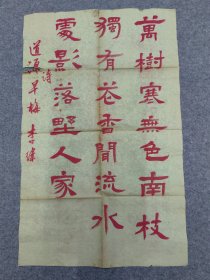 萬樹寒無色南枝
獨有花香聞流水
處影落野人家
道源詩早梅 李